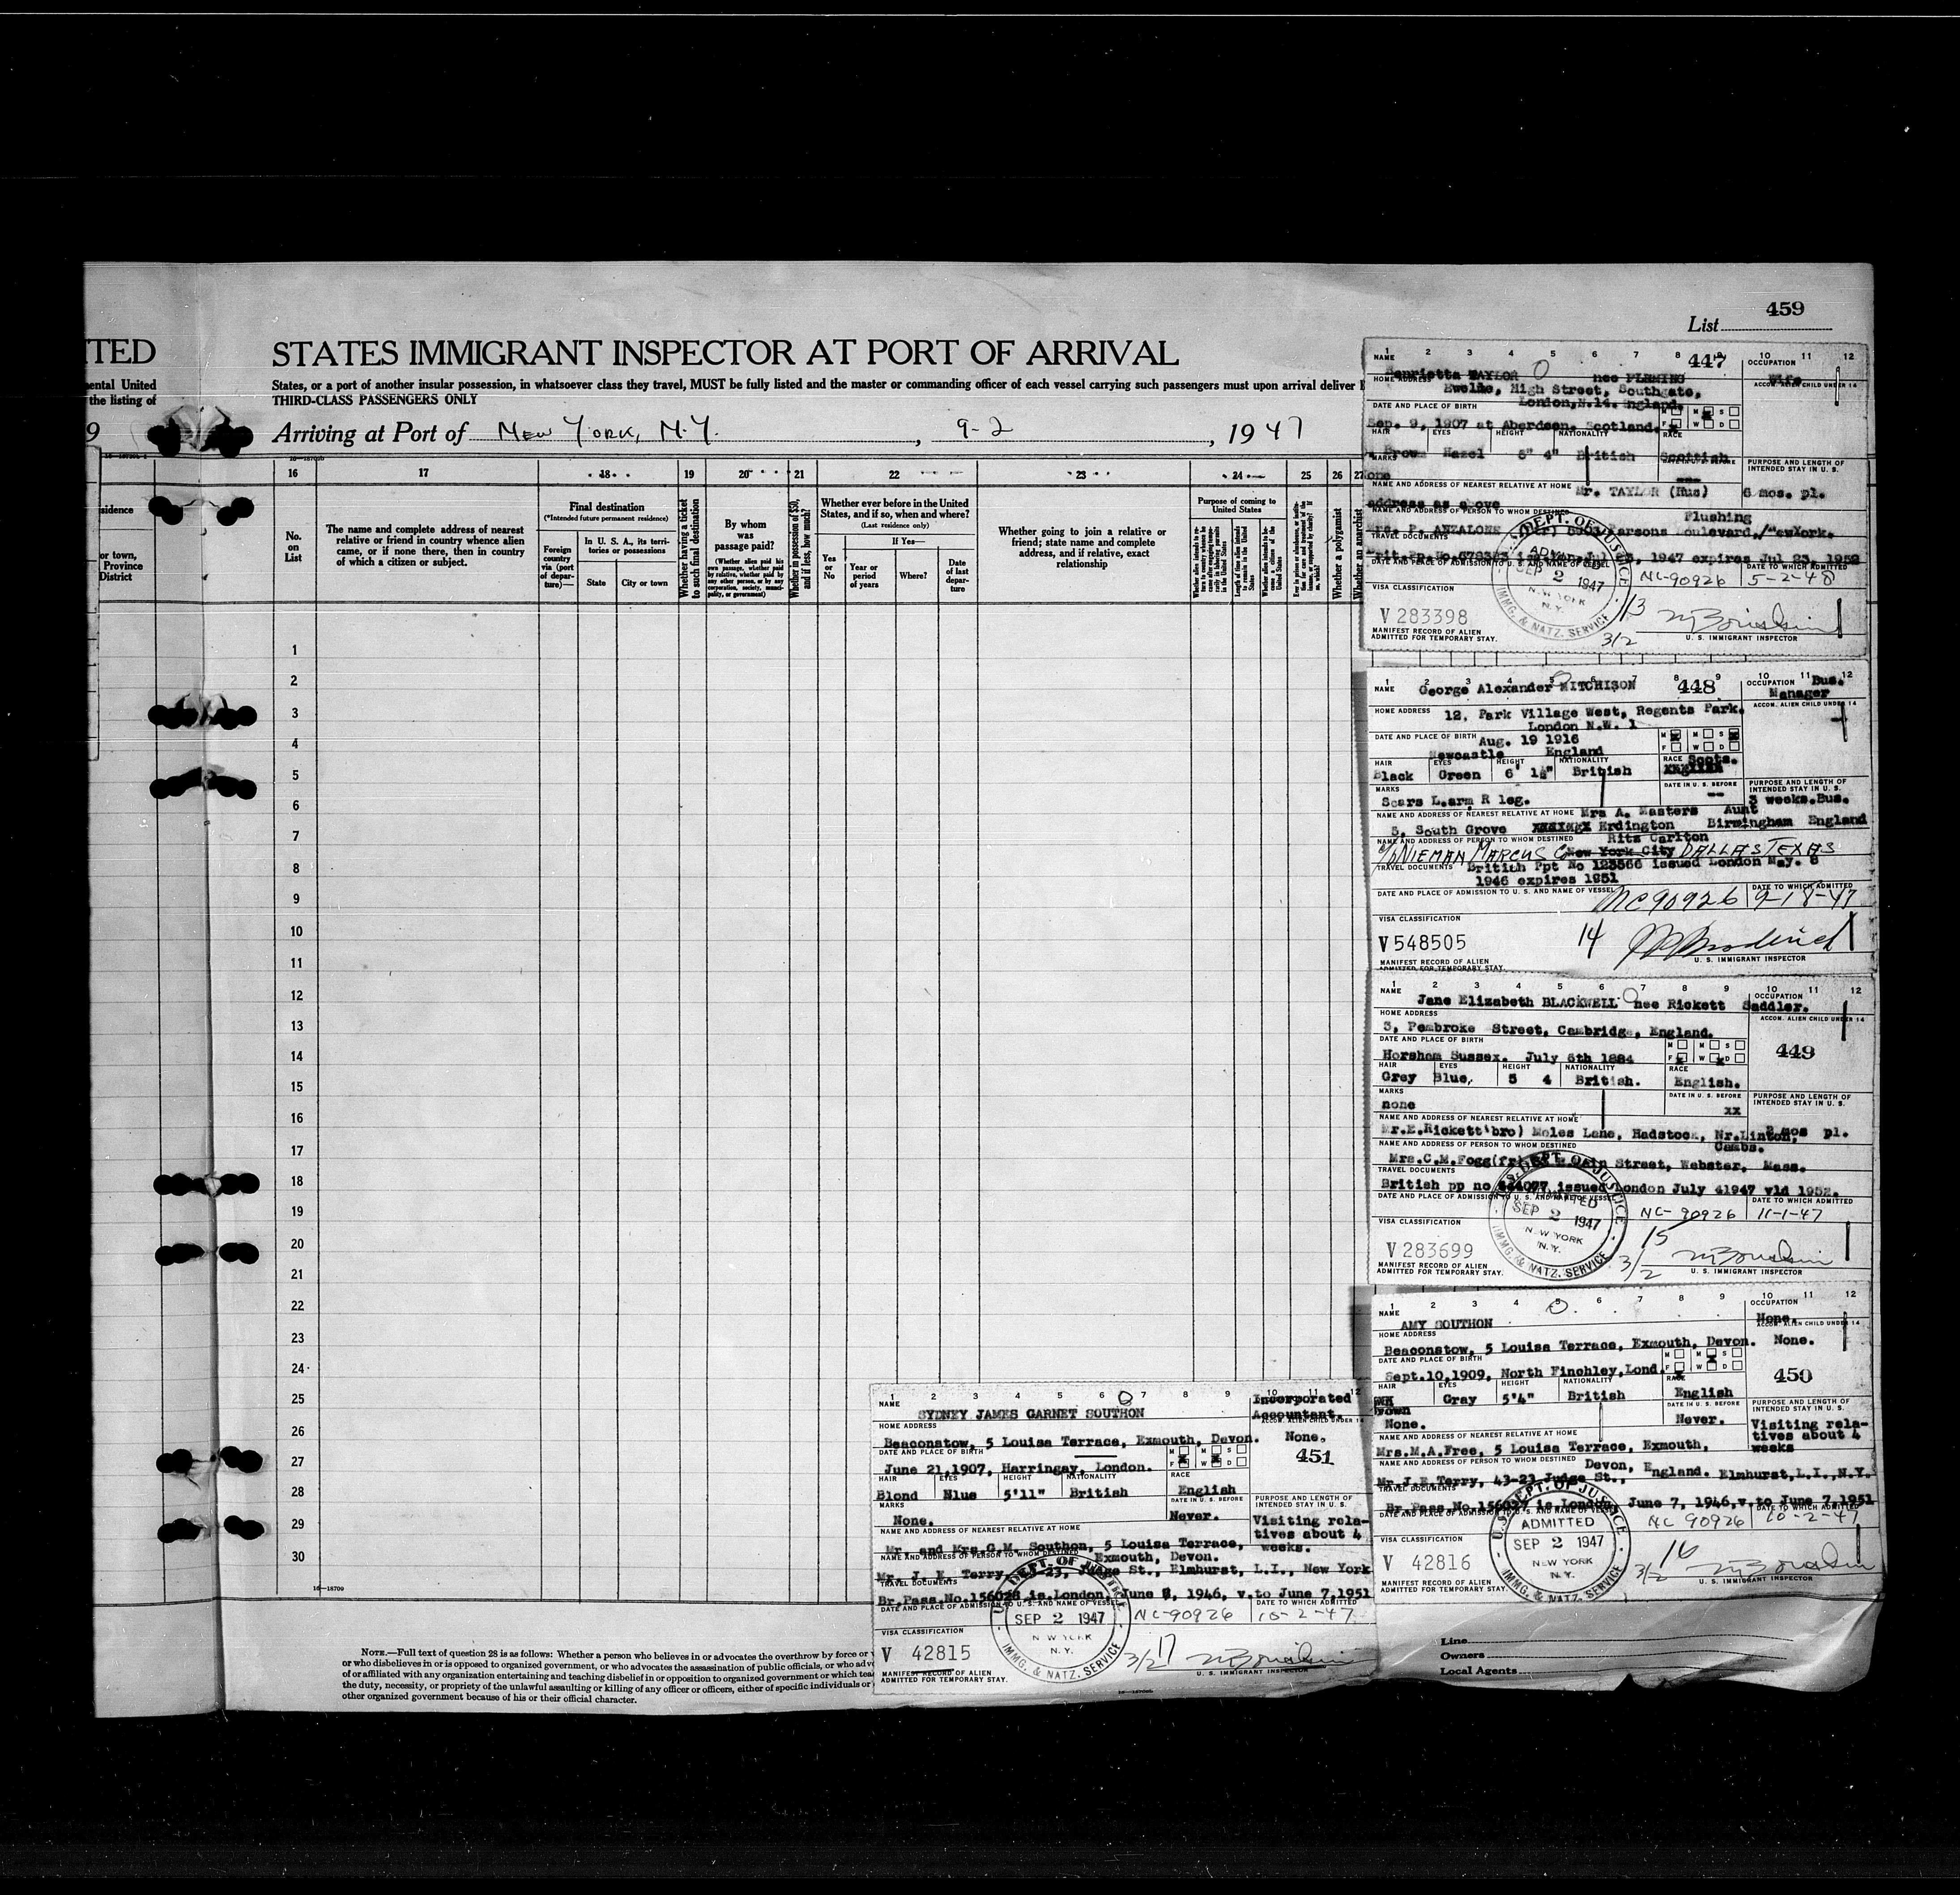 459
List
TED
STATES IMMIGRANT INSPECTOR AT PORT OF ARRIVAL
ental United
the listing of
States, or a port of another insular possession, in whatsoever class they travel, MUST be fully listed and the master or commanding officer of each vessel carrying such passengers must upon arrival deliver
THIRD-CLASS PASSENGERS ONLY
9
Arriving at Port of NEW YORK, N.Y. , 9-2 , 1947
16 17 18 19 20 21 22 23 24 25 26 27
sidence
or town,
Province
District
No.
on
List
The name and complete address of nearest
relative or friend in country whence alien
came, or if none there, then in country
of which a citizen or subject.
Final destination
(*Intended future permanent residence)
Foreign
country
via (port
of depar-
ture)—
In U. S. A., its terri-
tories or possessions
State
City or town
Whether having a ticket
to such final destination
By whom
was
passage paid?
(Whether alien paid his
own passage, whether paid
by relative, whether paid by
any other person, or by any
corporation, society, munici-
pality, or government)
Whether in possession of $50,
and if less, how much?
Whether ever before in the United
States, and if so, when and where?
(Last residence only)
If Yes—
Yes
or
No
Year or
period
of years
Where?
Date
of last
depar-
ture
Whether going to join a relative or
friend; state name and complete
address, and if relative, exact
relationship
Purpose of coming to
United States
Whether a polygamist
Whether an anarchist
1
2
3
4
5
6
7
8
9
10
11
12
13
14
15
16
17
18
19
20
21
22
23
24
25
26
27
28
29
30
16—18709
NOTE.—Full text of question 28 is as follows: Whether a person who believes in or advocates the overthrow by force or
or who disbelieves in or is opposed to organized government, or who advocates the assassination of public officials, or who
of or affiliated with any organization entertaining and teaching disbelief in or opposition to organized government or which
the duty, necessity, or propriety of the unlawful assaulting or killing of any officer or officers, either of specific individuals or
other organized government because of his or their official character.
1 2 3 4 5 6 7 8 9 10 11 12
NAME
447
OCCUPATION
Henrietta TAYLOR nee FLEMING
Wife
HOME ADDRESS
ACCOM. ALIEN CHILD UNDER 14
Ewelme, High Street, Southgate,
London, N.14. England.
DATE AND PLACE OF BIRTH
M M S
F W D
Sep. 9, 1907 at Aberdeen, Scotland.
HAIR EYES HEIGHT NATIONALITY RACE
Brown Hazel 5" 4" British Scottish
MARKS
PURPOSE AND LENGTH OF
INTENDED STAY IN U. S.
None
NAME AND ADDRESS OF NEAREST RELATIVE AT HOME
Mr. TAYLOR (Hus)
6 mos. pl.
address as above
NAME AND ADDRESS OF PERSON TO WHOM DESTINED
Flushing
Mrs. P. ANZALONE Parsons Boulevard, NewYork.
TRAVEL DOCUMENTS
1947 expires Jul 23, 1952
DATE AND PLACE OF ADMISSION TO U. S. AND NAME OF VESSEL
DATE TO WHICH ADMITTED
NC-90926 5-2-48
VISA CLASSIFICATION
V 283398
DEPT. OF JUSTICE
SEP 2 1947
NEW YORK
N.Y.
IMMG. & NATZ. SERVICE
13
3/2
MANIFEST RECORD OF ALIEN
ADMITTED FOR TEMPORARY STAY.
U. S. IMMIGRANT INSPECTOR
1 2 3 4 5 6 7 8 9 10 11 12
NAME George Alexander MITCHISON
448
OCCUPATION Bus.
Manager
HOME ADDRESS
ACCOM. ALIEN CHILD UNDER 14
12, Park Village West, Regents Park.
London N.W. 1
DATE AND PLACE OF BIRTH
Aug. 19 1916
M M S
F W D
Newcastle England
HAIR EYES HEIGHT NATIONALITY RACE Scots.
Black Green 6' 1½" British
MARKS
DATE IN U. S. BEFORE
PURPOSE AND LENGTH OF
INTENDED STAY IN U. S.
Scars L.arm R leg.
--
3 weeks.Bus.
NAME AND ADDRESS OF NEAREST RELATIVE AT HOME Mrs A. Masters Aunt
5, South Grove Erdington Birmingham England
NAME AND ADDRESS OF PERSON TO WHOM DESTINED Ritz Carlton
C/o NIEMAN MARCUS C New York City DALLAS TEXAS
TRAVEL DOCUMENTS British Ppt No 123566 issued London May. 8
1946 expires 1951
DATE AND PLACE OF ADMISSION TO U. S. AND NAME OF VESSEL
DATE TO WHICH ADMITTED
NC90926 9-18-47
VISA CLASSIFICATION
V 548505
14
MANIFEST RECORD OF ALIEN
ADMITTED FOR TEMPORARY STAY
U. S. IMMIGRANT INSPECTOR
1 2 3 4 5 6 7 8 9 10 11 12
NAME
OCCUPATION
Jane Elizabeth BLACKWELL nee Rickett Saddler.
HOME ADDRESS
ACCOM. ALIEN CHILD UNDER 14
3, Pembroke Street, Cambridge, England.
DATE AND PLACE OF BIRTH
M M S
F W D
449
Horsham Sussex. July 6th 1884
HAIR EYES HEIGHT NATIONALITY RACE
Grey Blue, 5 4 British. English.
MARKS
DATE IN U. S. BEFORE
PURPOSE AND LENGTH OF
INTENDED STAY IN U. S.
none
xx
NAME AND ADDRESS OF NEAREST RELATIVE AT HOME
2 mos pl.
Mr.E.Rickett(bro) Moles Lane, Hadstock, Nr.Linton,
Cambs.
NAME AND ADDRESS OF PERSON TO WHOM DESTINED
Mrs.C.M.Fogg(fr) Main Street, Webster, Mass.
TRAVEL DOCUMENTS
British pp no issued London July 41947 vld 1952.
DATE AND PLACE OF ADMISSION TO U. S. AND NAME OF VESSEL
DATE TO WHICH ADMITTED
NC-90926 11-1-47
VISA CLASSIFICATION
V 283699
DEPT. OF JUSTICE
ADMITTED
SEP 2 1947
NEW YORK
N.Y.
IMMG. & NATZ. SERVICE
15
3/2
MANIFEST RECORD OF ALIEN
ADMITTED FOR TEMPORARY STAY.
U. S. IMMIGRANT INSPECTOR
1 2 3 4 5 6 7 8 9 10 11 12
NAME
OCCUPATION
AMY SOUTHON
None.
HOME ADDRESS
ACCOM. ALIEN CHILD UNDER 14
Beaconstow, 5 Louisa Terrace, Exmouth, Devon. None.
DATE AND PLACE OF BIRTH
M M S
F W D
Sept.10,1909, North Finchley,Lond.
450
HAIR EYES HEIGHT NATIONALITY RACE
Brown Gray 5'4" British English
DATE IN U. S. BEFORE
PURPOSE AND LENGTH OF
INTENDED STAY IN U. S.
None.
Never.
Visiting rela-
tives about 4
weeks
NAME AND ADDRESS OF NEAREST RELATIVE AT HOME
Mrs.M.A.Free, 5 Louisa Terrace, Exmouth,
NAME AND ADDRESS OF PERSON TO WHOM DESTINED Devon, England.
Mr.J.E.Terry, 43-23 Judge St., Elmhurst,L.I.,N.Y.
TRAVEL DOCUMENTS
Br.Pass.No.156027 is.London, June 7, 1946,v.to June 7,1951
DATE AND PLACE OF ADMISSION TO U. S. AND NAME OF VESSEL
DATE TO WHICH ADMITTED
NC 90926 10-2-47
VISA CLASSIFICATION
V 42816
U.S. DEPT. OF JUSTICE
ADMITTED
SEP 2 1947
NEW YORK
N.Y.
IMMG. & NATZ. SERVICE
16
3/2
MANIFEST RECORD OF ALIEN
ADMITTED FOR TEMPORARY STAY.
U. S. IMMIGRANT INSPECTOR
1 2 3 4 5 6 7 8 9 10 11 12
NAME
Incorporated
SYDNEY JAMES GARNET SOUTHON
Accountant.
HOME ADDRESS
ACCOM. ALIEN CHILD UNDER 14
Beaconstow, 5 Louisa Terrace, Exmouth, Devon. None.
DATE AND PLACE OF BIRTH
M M S
F W D
451
June 21,1907, Harringay, London.
HAIR EYES HEIGHT NATIONALITY RACE
Blond Nlue 5'11" British English
MARKS
DATE IN U. S. BEFORE
PURPOSE AND LENGTH OF
INTENDED STAY IN U. S.
None.
Never.
Visiting rela-
tives about 4
weeks.
NAME AND ADDRESS OF NEAREST RELATIVE AT HOME
Mr. and Mrs.G.M. Southon, 5 Louisa Terrace,
Exmouth, Devon.
NAME AND ADDRESS OF PERSON TO WHOM DESTINED
Mr. J. E. Terry, 43-23, Judge St., Elmhurst, L.I., New York
TRAVEL DOCUMENTS
Br.Pass.No.156028 is.London, June 8, 1946, v.to June 7,1951
DATE AND PLACE OF ADMISSION TO U. S. AND NAME OF VESSEL
DATE TO WHICH ADMITTED
NC-90926 10-2-47
VISA CLASSIFICATION
V 42815
DEPT. OF
SEP 2 1947
NEW YORK
N.Y.
IMMG. & NATZ. SERVICE
17
3/2
MANIFEST RECORD OF ALIEN
ADMITTED FOR TEMPORARY STAY.
U. S. IMMIGRANT INSPECTOR
Line
Owners
Local Agents